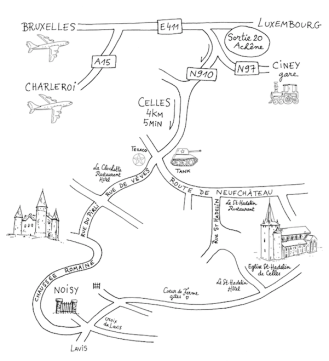 BRUXELLES
E411
LUXEMBOURG
Sortie 20
Achêne
A15
N910
N97
CINEY
gare
CHARLEROI
CELLES
4KM
5MIN
Texaco
TANK
La Clochette
Restaurant
Hôtel
RUE DE VÊVES
ROUTE DE NEUFCHÂTEAU
RUE DU PIRE
RUE ST HADELIN
Le St Hadelin
Restaurant
CHAUSSÉE ROMAINE
Eglise St Hadelin
de Celles
NOISY
Coeur de Ferme
gîtes
Le St Hadelin
Hôtel
LAVIS